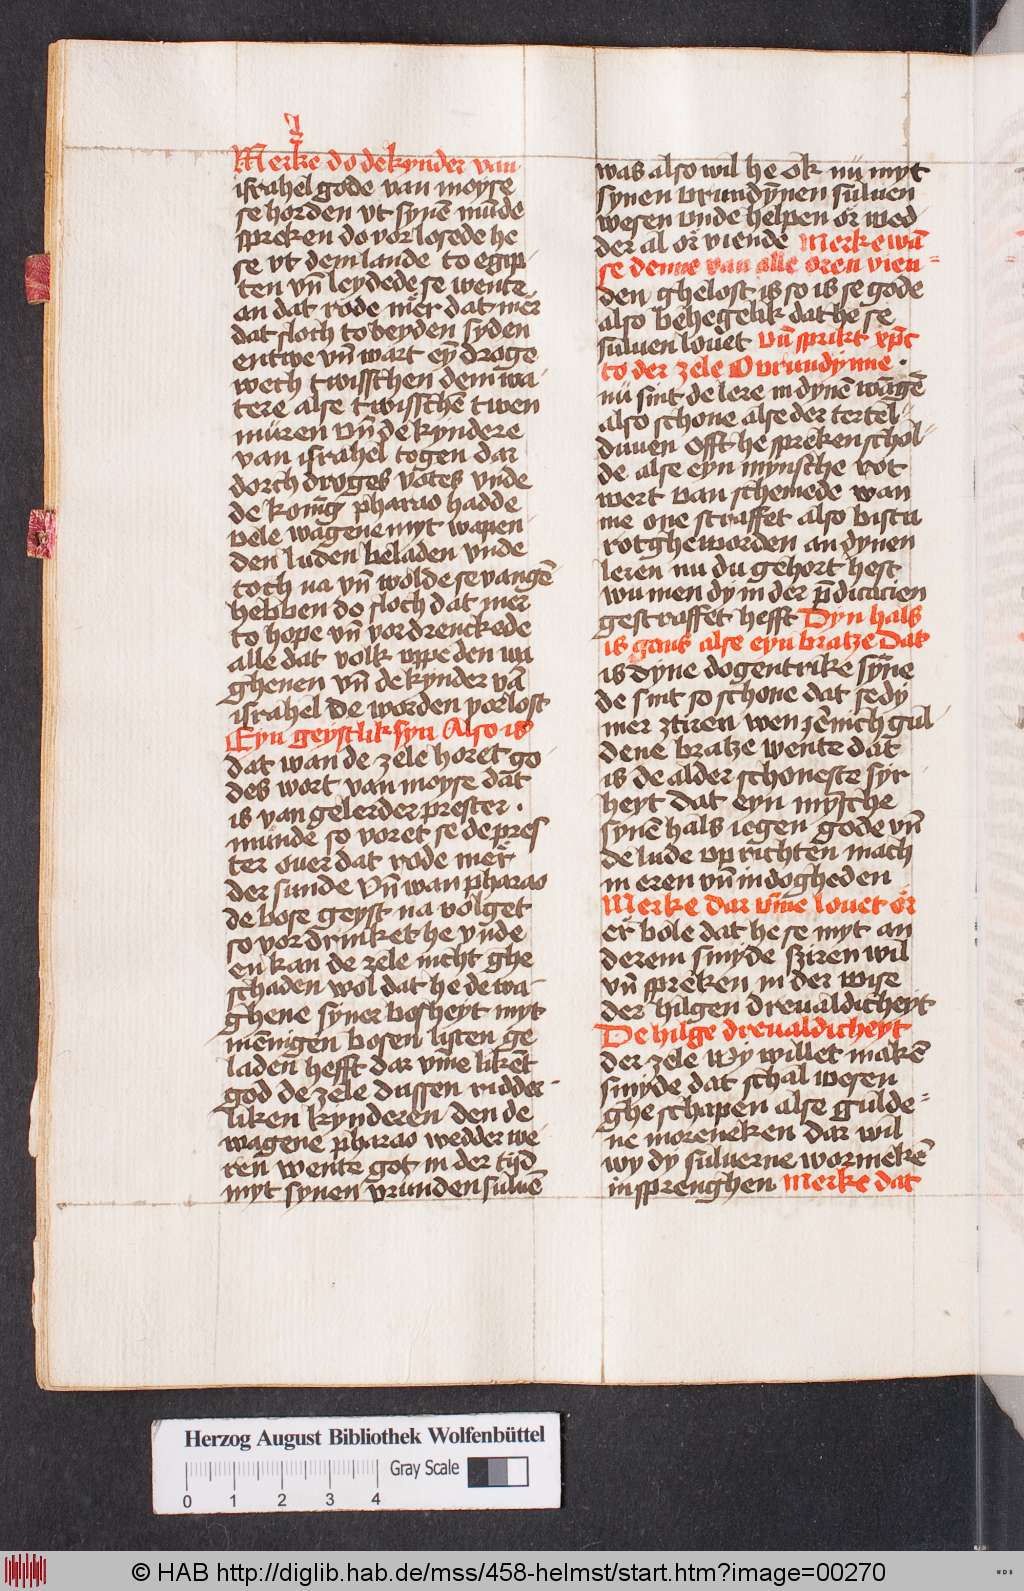 Merke do de kynder van
israhel gode van moyse
se horden vt synē mūde
spreken do vorlosede he
se vt dem lande to egip-
ten vn̄ leydede se wente
an dat rode mer dat mer
dat floch to beyden syden
entwe vn̄ wart eyn droge
wech twisschen dem wa-
tere alse twisschē twen
müren vn̄ de kyndere
van israhel togen dar
dorch droges votes vnde
de konig pharao hadde
vele wagene myt wapen-
den luden beladen vnde
toch na vn̄ wolde se vangē
hebben do floch dat mer
to hope vn̄ vordrenckede
alle dat volk vppe den wa
ghenen vn̄ de kynder vā
israhel de worden vorlost
Eyn geystlik syn Also is
dat wan de zele horet go
des wort van moyse dat
is van gelerder prester ·
munde so voret se de pres
ter ouer dat rode mer
der sunde Vn̄ wan pharao
de bose geyst na volget
so vordrinket he vnde
en kan de zele nicht ghe
schaden wol dat he de wa-
ghene syner bosheyt myt
mēnigen bosen listen ge
laden hefft dar vm̄e likēt
god de zele dussen ridder-
liken kynderen den de
wagene pharao wedder we-
ren wente got in der tijd
myt synen vrunden suluē
was also wil he ok nu myt
synen vrundȳnen suluen
wesen vnde helpen or wed-
der al or viende Merke wā
se denne van alle oren vien-
den ghelost is so is se gode
also behegelik dat he se
suluen louet Vn̄ sprikt xp̄c
to der zele O vrundynne ·
nu sint de lere in dynē wāgē
also schone alse der tertel-
duuen Offt he spreken schol-
de alse eyn mynsche rot
wert van schemede wan
me one straffet also bistu
rot gheworden an dynen
leren nu du gehort hest
wu men dy in der p̄dicacien
gestraffet hefft Dyn hals
is gans alse eyn bratze Dat
is dyne dogentrike synne
de sint so schone dat se dy
mer ztiren wen jenich gul-
dene bratze wente dat
is de alder schoneste syr-
heyt dat eyn mȳsche
synē hals iegen gode vn̄
de lude vp richten mach
in eren vn̄ in dogheden
Merke dar vm̄e louet or
er bole dat he se myt an
derem smyde sziren wil
vn̄ spreken in der wise
der hilgen dreualdicheyt
De hilge dreualdicheyt
der zele Wy willet makē
smyde dat schal wesen
gheschapen alse gulde-
ne moreneken dar wil
wy dy suluerne wormekē
in sprenghen Merke dat
Herzog August Bibliothek Wolfenbüttel
Gray Scale
0 1 2 3 4
© HAB http://diglib.hab.de/mss/458-helmst/start.htm?image=00270